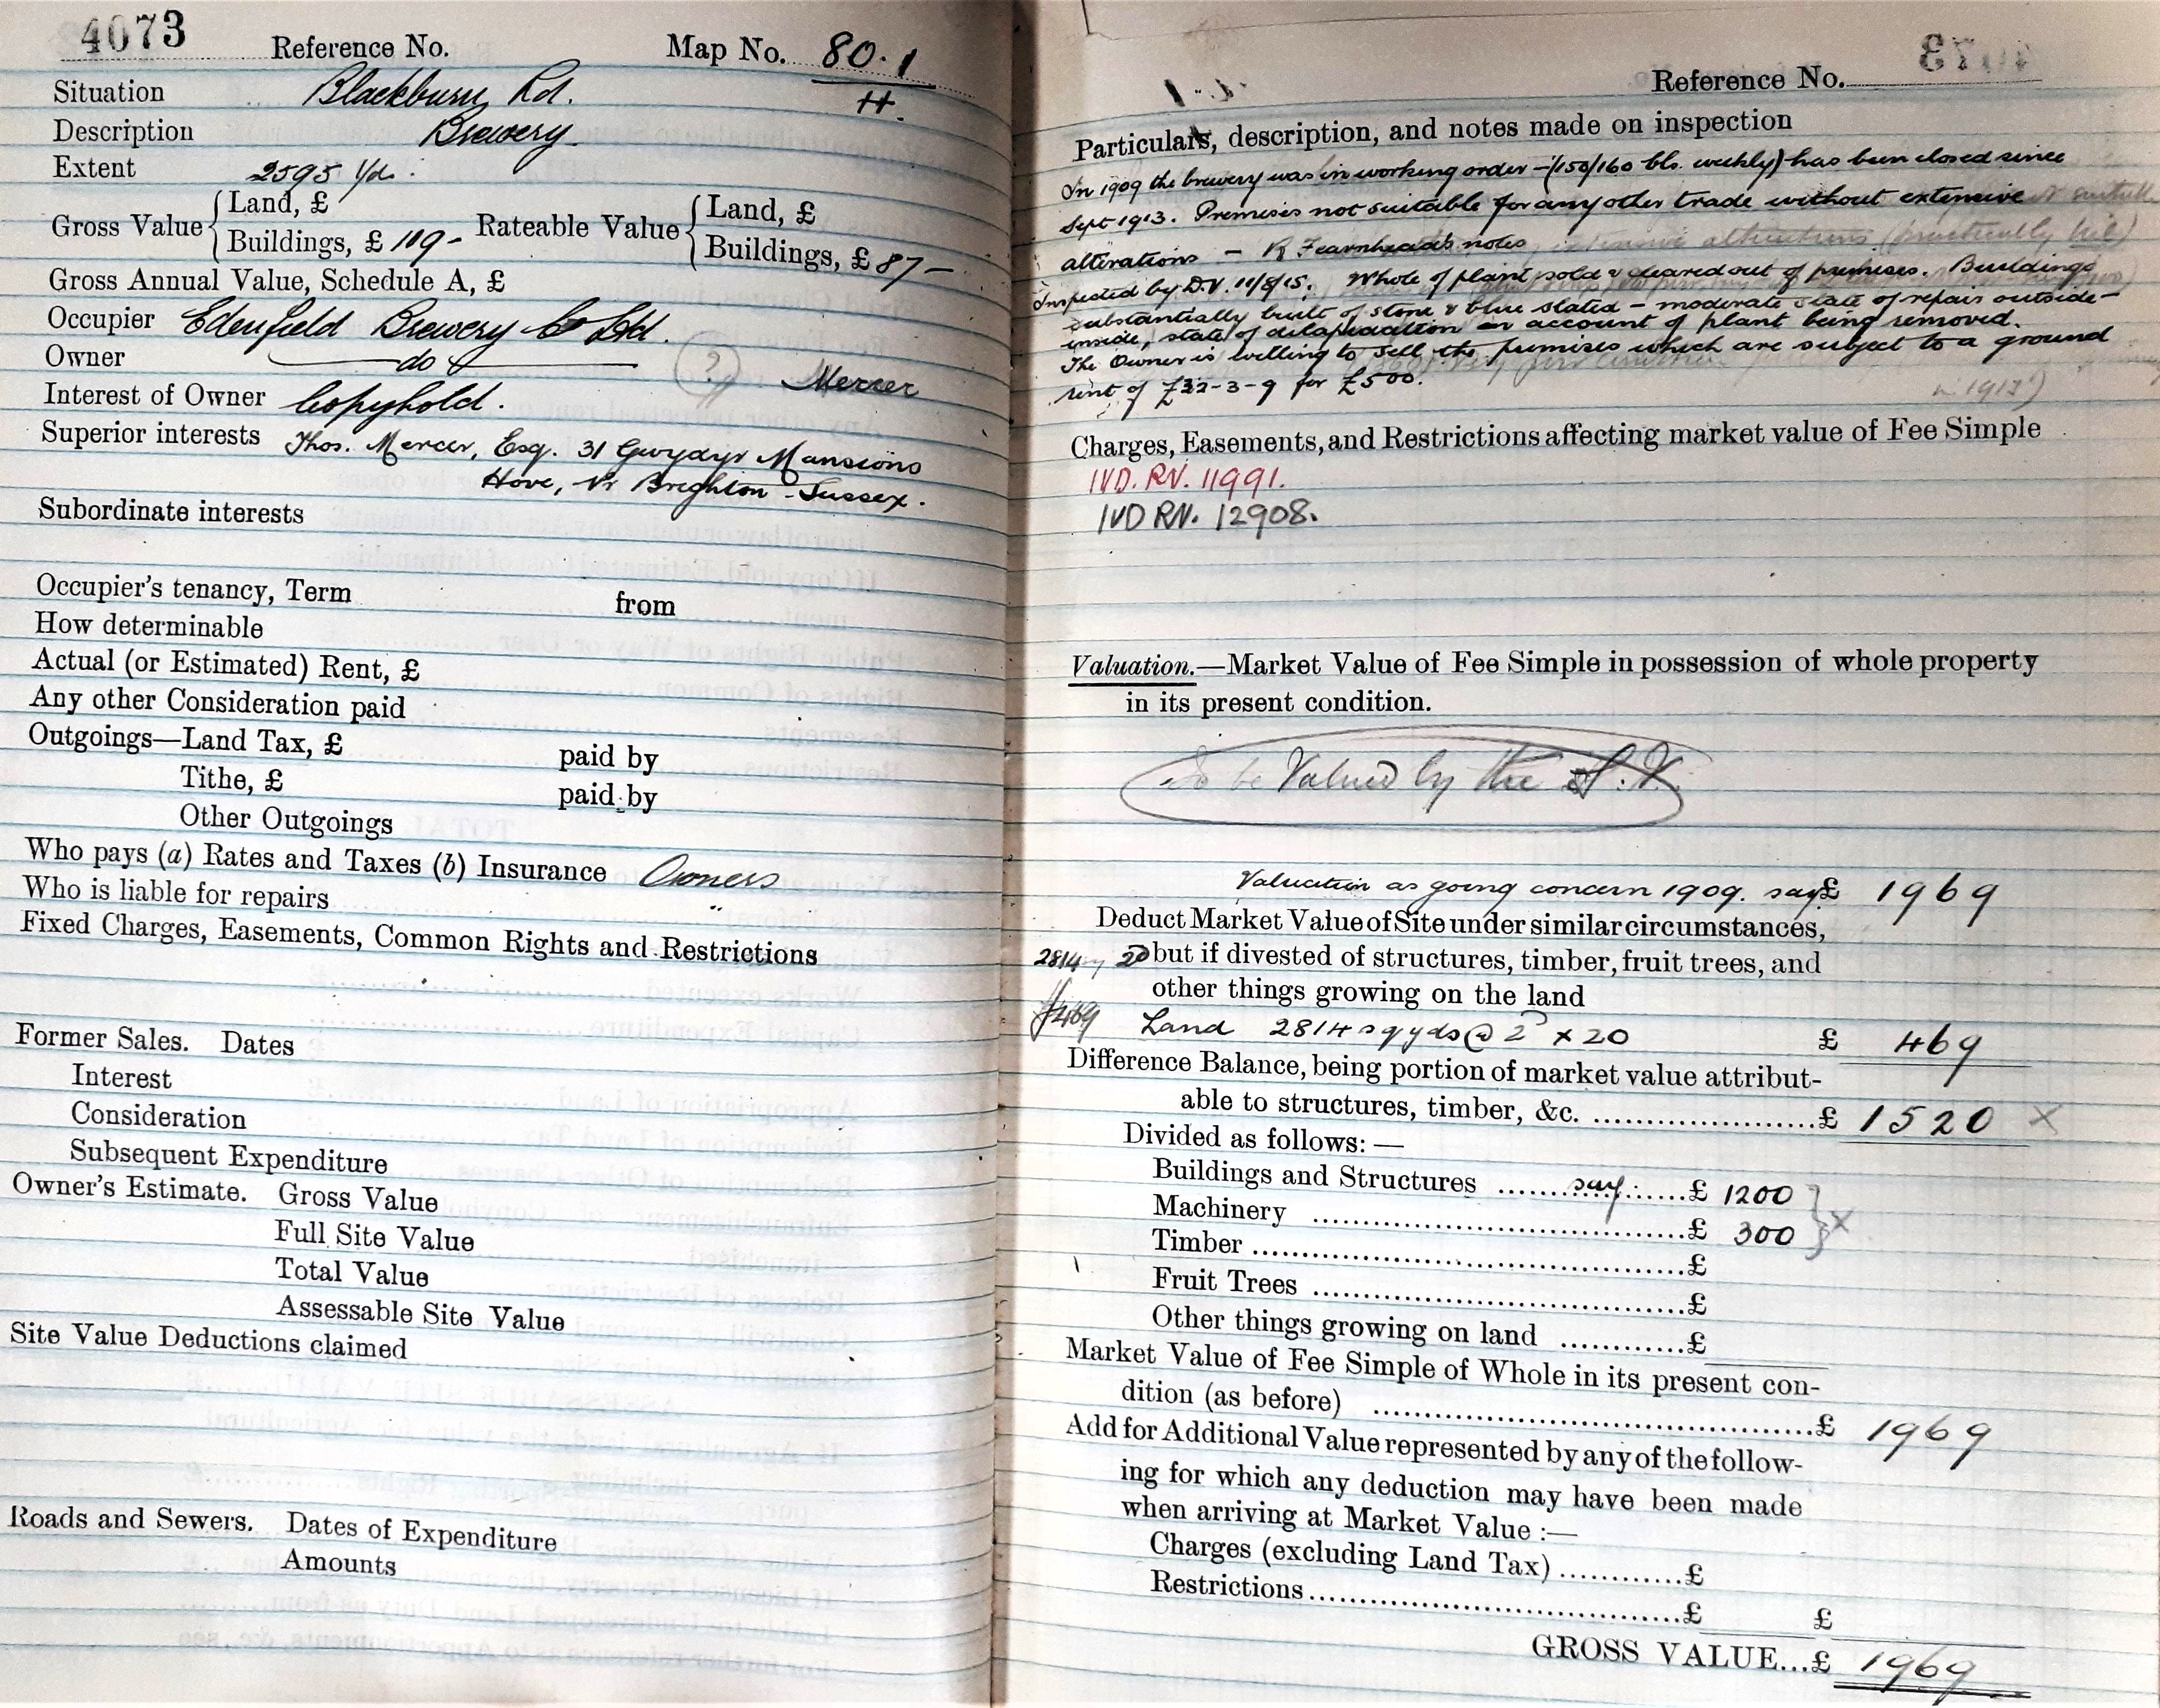 4073 Reference No. Map No. 80.1
H.
Situation Blackburn Rd.
Description Brewery
Extent 2595 Yds.
Gross Value { Land, £ Rateable Value { Land, £
Buildings, £ 109 - Buildings, £ 87 -
Gross Annual Value, Schedule A, £
Occupier Edenfield Brewery Co Ltd.
Owner do (?) Mercer
Interest of Owner Copyhold.
Superior interests Thos. Mercer, Esq. 31 Gwydyr Mansions
Hove, Nr Brighton - Sussex.
Subordinate interests
Occupier's tenancy, Term from
How determinable
Actual (or Estimated) Rent, £
Any other Consideration paid
Outgoings—Land Tax, £ paid by
Tithe, £ paid by
Other Outgoings
Who pays (a) Rates and Taxes (b) Insurance Owners
Who is liable for repairs "
Fixed Charges, Easements, Common Rights and Restrictions
Former Sales. Dates
Interest
Consideration
Subsequent Expenditure
Owner's Estimate. Gross Value
Full Site Value
Total Value
Assessable Site Value
Site Value Deductions claimed
Roads and Sewers. Dates of Expenditure
Amounts
Reference No.
Particulars, description, and notes made on inspection
In 1909 the brewery was in working order - (150/160 bls. weekly) has been closed since
Sept 1913. Premises not suitable for any other trade without extensive
alterations - R Fearnhead's notes
Inspected by D.V. 11/8/15. Whole of plant sold & cleared out of premises. Buildings
substantially built of stone & blue slated - moderate state of repair outside -
inside, state of dilapidation on account of plant being removed.
The Owner is willing to sell the premises which are subject to a ground
rent of £32-3-9 for £500.
Charges, Easements, and Restrictions affecting market value of Fee Simple
IVD. RV. 11991.
IVD RV. 12908.
Valuation.—Market Value of Fee Simple in possession of whole property
in its present condition.
To be Valued by the S.V.
Valuation as going concern 1909. say £ 1969
Deduct Market Value of Site under similar circumstances,
2814 2D but if divested of structures, timber, fruit trees, and
other things growing on the land
£469 Land 2814 sq yds @ 2D x 20 £ 469
Difference Balance, being portion of market value attribut-
able to structures, timber, &c. £ 1520 X
Divided as follows:—
Buildings and Structures say £ 1200
Machinery £ 300 } X
Timber £
Fruit Trees £
Other things growing on land £
Market Value of Fee Simple of Whole in its present con-
dition (as before) £ 1969
Add for Additional Value represented by any of the follow-
ing for which any deduction may have been made
when arriving at Market Value :—
Charges (excluding Land Tax) £
Restrictions £ £
GROSS VALUE...£ 1969